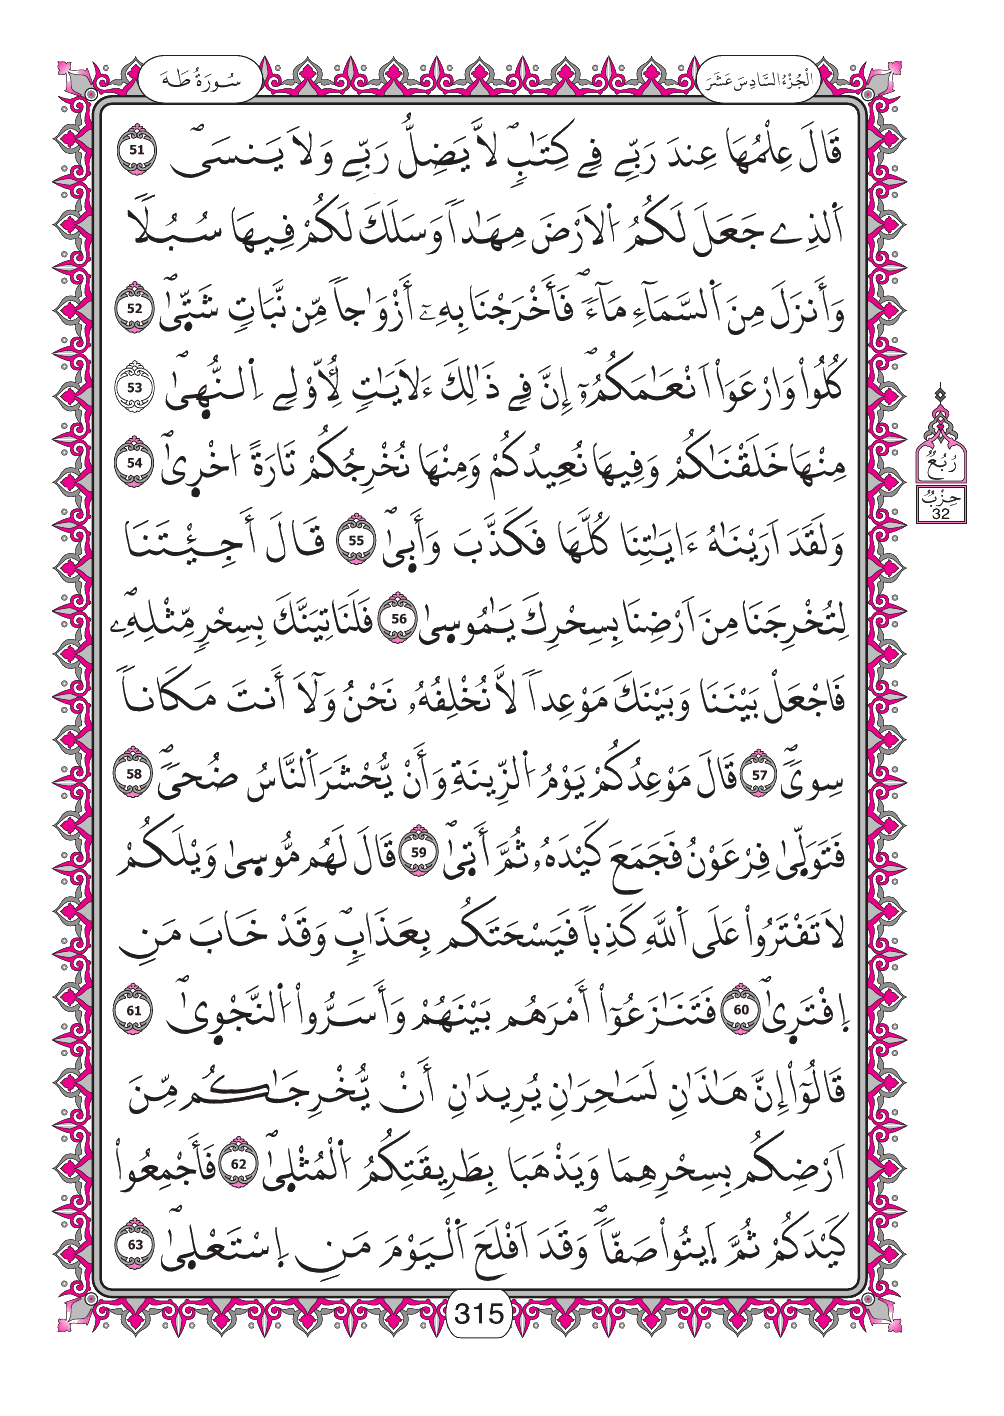 سُورَةُ طَهَ
الْجُزْءُ السَّادِسَ عَشَرَ
قَالَ عِلْمُهَا عِندَ رَبِّے فِے كِتَٰبٖۖ لَّا يَضِلُّ رَبِّے وَلَا يَنسَىۖ 51
اَ۬لذِے جَعَلَ لَكُمُ اُ۬لَارْضَ مِهَٰداٗ وَسَلَكَ لَكُمْ فِيهَا سُبُلاٗ
وَأَنزَلَ مِنَ اَ۬لسَّمَآءِ مَآءٗۖ فَأَخْرَجْنَا بِهِۦٓ أَزْوَٰجاٗ مِّن نَّبَاتٖ شَتّ۪ىٰۖ 52
كُلُواْ وَارْعَوَاْ اَنْعَٰمَكُمُۥٓۖ إِنَّ فِے ذَٰلِكَ ءَلَايَٰتٖ لِّأُوْلِے اِ۬لنُّه۪ىٰۖ 53
مِنْهَا خَلَقْنَٰكُمْ وَفِيهَا نُعِيدُكُمْ وَمِنْهَا نُخْرِجُكُمْ تَارَةً اُخْر۪ىٰۖ 54
وَلَقَدَ اَرَيْنَٰهُ ءَايَٰتِنَا كُلَّهَا فَكَذَّبَ وَأَب۪ىٰۖ 55 قَالَ أَجِئْتَنَا
لِتُخْرِجَنَا مِنَ اَرْضِنَا بِسِحْرِكَ يَٰمُوس۪ىٰ 56 فَلَنَاتِيَنَّكَ بِسِحْرٖ مِّثْلِهِۦۖ
فَاجْعَلْ بَيْنَنَا وَبَيْنَكَ مَوْعِداٗ لَّا نُخْلِفُهُۥ نَحْنُ وَلَآ أَنتَ مَكَاناٗ
سِوىٗۖ 57 قَالَ مَوْعِدُكُمْ يَوْمُ اُ۬لزِّينَةِ وَأَنْ يُّحْشَرَ اَ۬لنَّاسُ ضُحىٗۖ 58
فَتَوَلّ۪ىٰ فِرْعَوْنُ فَجَمَعَ كَيْدَهُۥ ثُمَّ أَت۪ىٰۖ 59 قَالَ لَهُم مُّوس۪ىٰ وَيْلَكُمْ
لَا تَفْتَرُواْ عَلَى اَ۬للَّهِ كَذِباٗ فَيَسْحَتَكُم بِعَذَابٖۖ وَقَدْ خَابَ مَنِ
اِ۪فْتَر۪ىٰۖ 60 فَتَنَٰزَعُوٓاْ أَمْرَهُم بَيْنَهُمْ وَأَسَرُّواْ اُ۬لنَّجْو۪ىٰۖ 61
قَالُوٓاْ إِنَّ هَٰذَٰنِ لَسَٰحِرَٰنِ يُرِيدَٰنِ أَنْ يُّخْرِجَٰكُم مِّنَ
اَرْضِكُم بِسِحْرِهِمَا وَيَذْهَبَا بِطَرِيقَتِكُمُ اُ۬لْمُثْل۪ىٰۖ 62 فَأَجْمِعُواْ
كَيْدَكُمْ ثُمَّ اَ۪يتُواْ صَفّاٗۖ وَقَدَ اَفْلَحَ اَ۬لْيَوْمَ مَنِ اِ۪سْتَعْل۪ىٰۖ 63
رُبُعُ
حِزْبُ
32
315